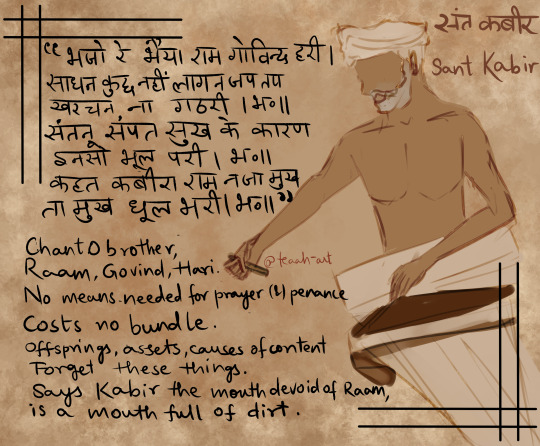 संत कबीर
Sant Kabir
“भजो रे भैया राम गोविन्द हरी।
साधन कुछ नहीं लागन जप तप
खरचन ना गठरी ।भ०॥
संततू संपत सुख के कारण
इनसो भूल परी । भ०॥
कहत कबीरा राम न जा मुख
ता मुख धूल भरी।भ०॥”
Chant O brother,
Raam, Govind, Hari.
@teaah-art
No means needed for prayer (&) penance
Costs no bundle.
Offsprings, assets, causes of content
Forget these things.
Says Kabir the mouth devoid of Raam,
is a mouth full of dirt.